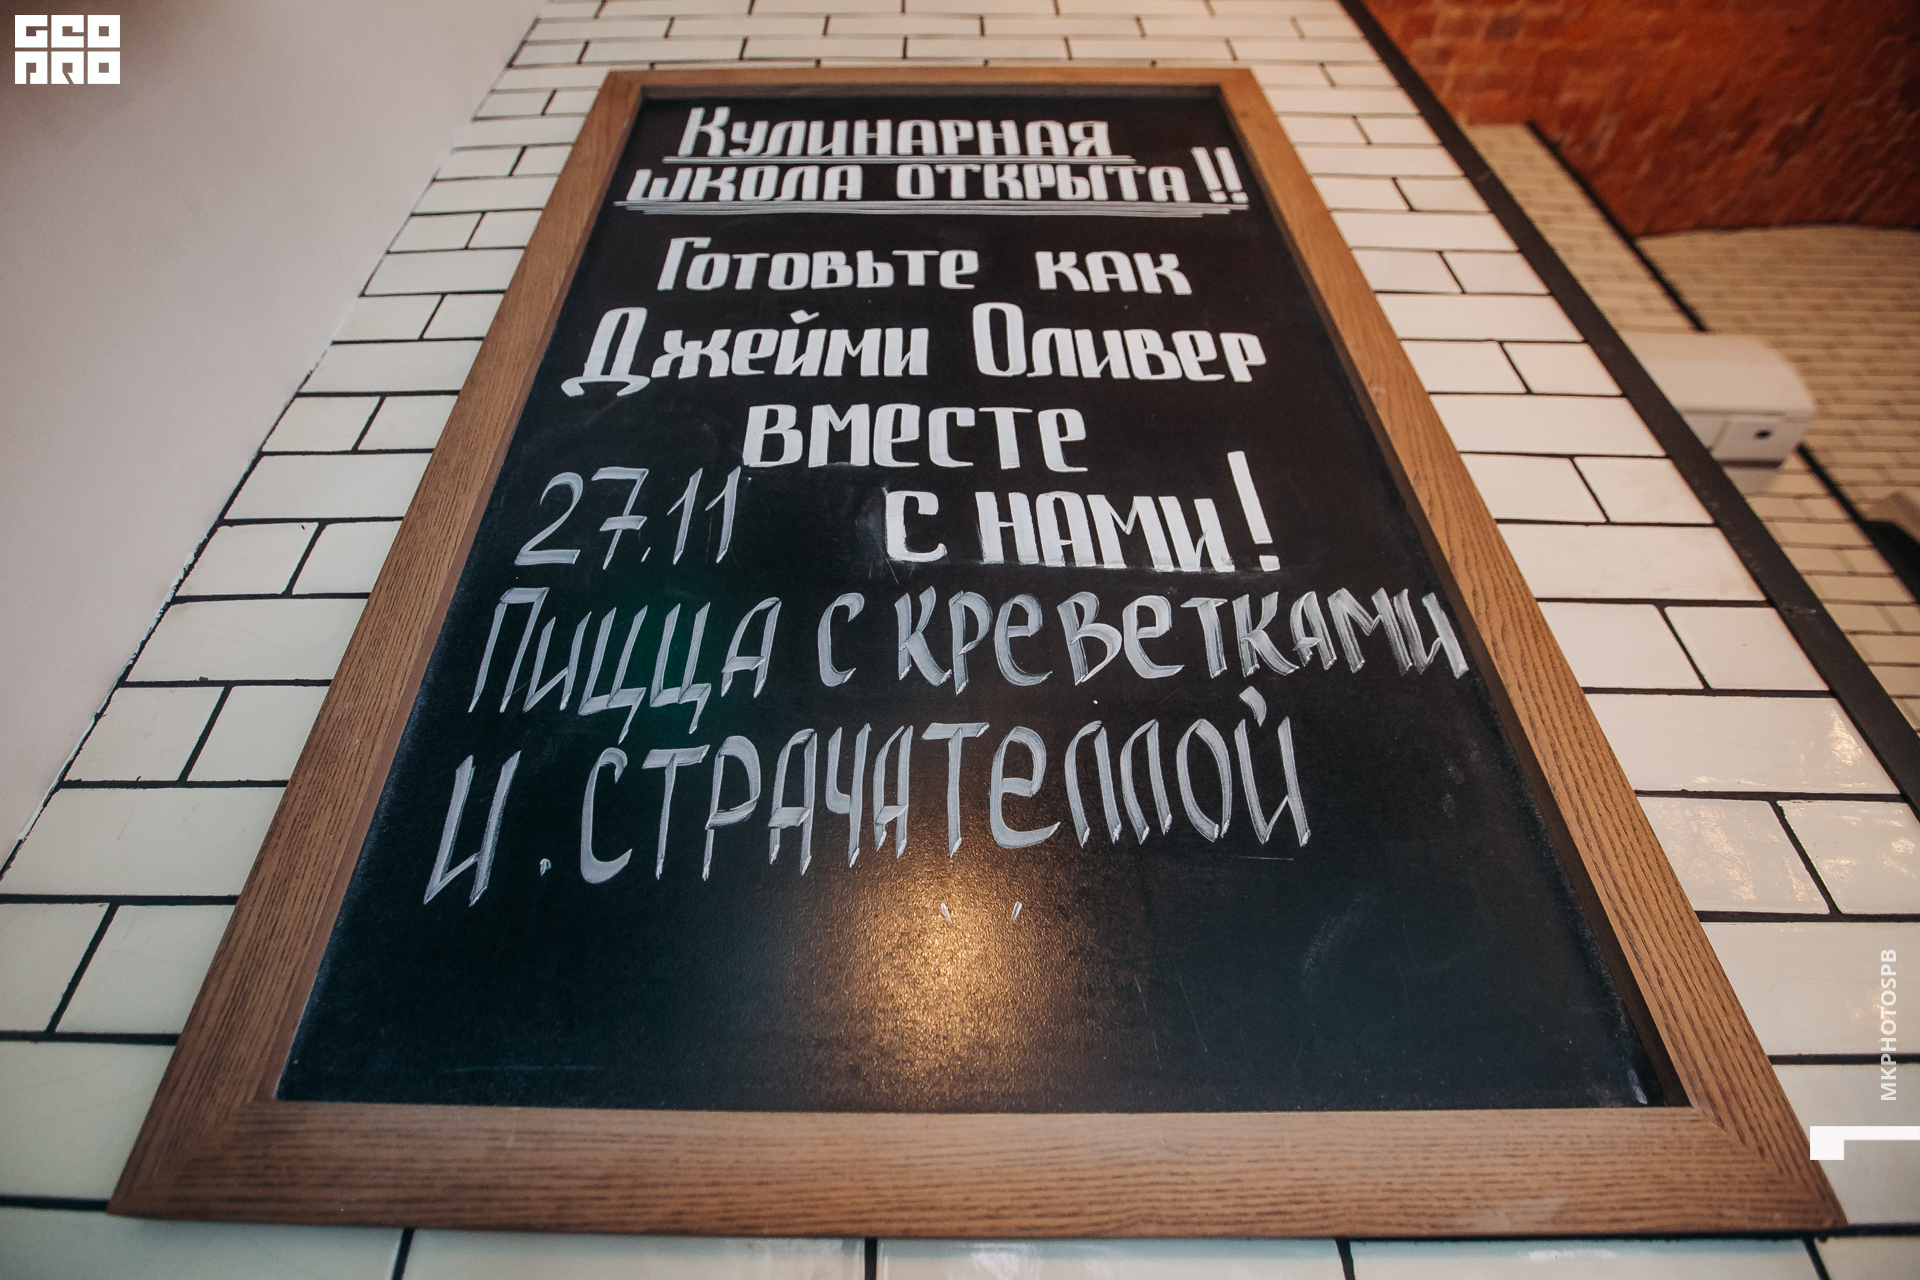 GEO
PRO
Кулинарная
школа открыта!!
Готовьте как
Джейми Оливер
вместе
27.11 с нами!
Пицца с креветками
и . страчателлой
MKPHOTOSPB